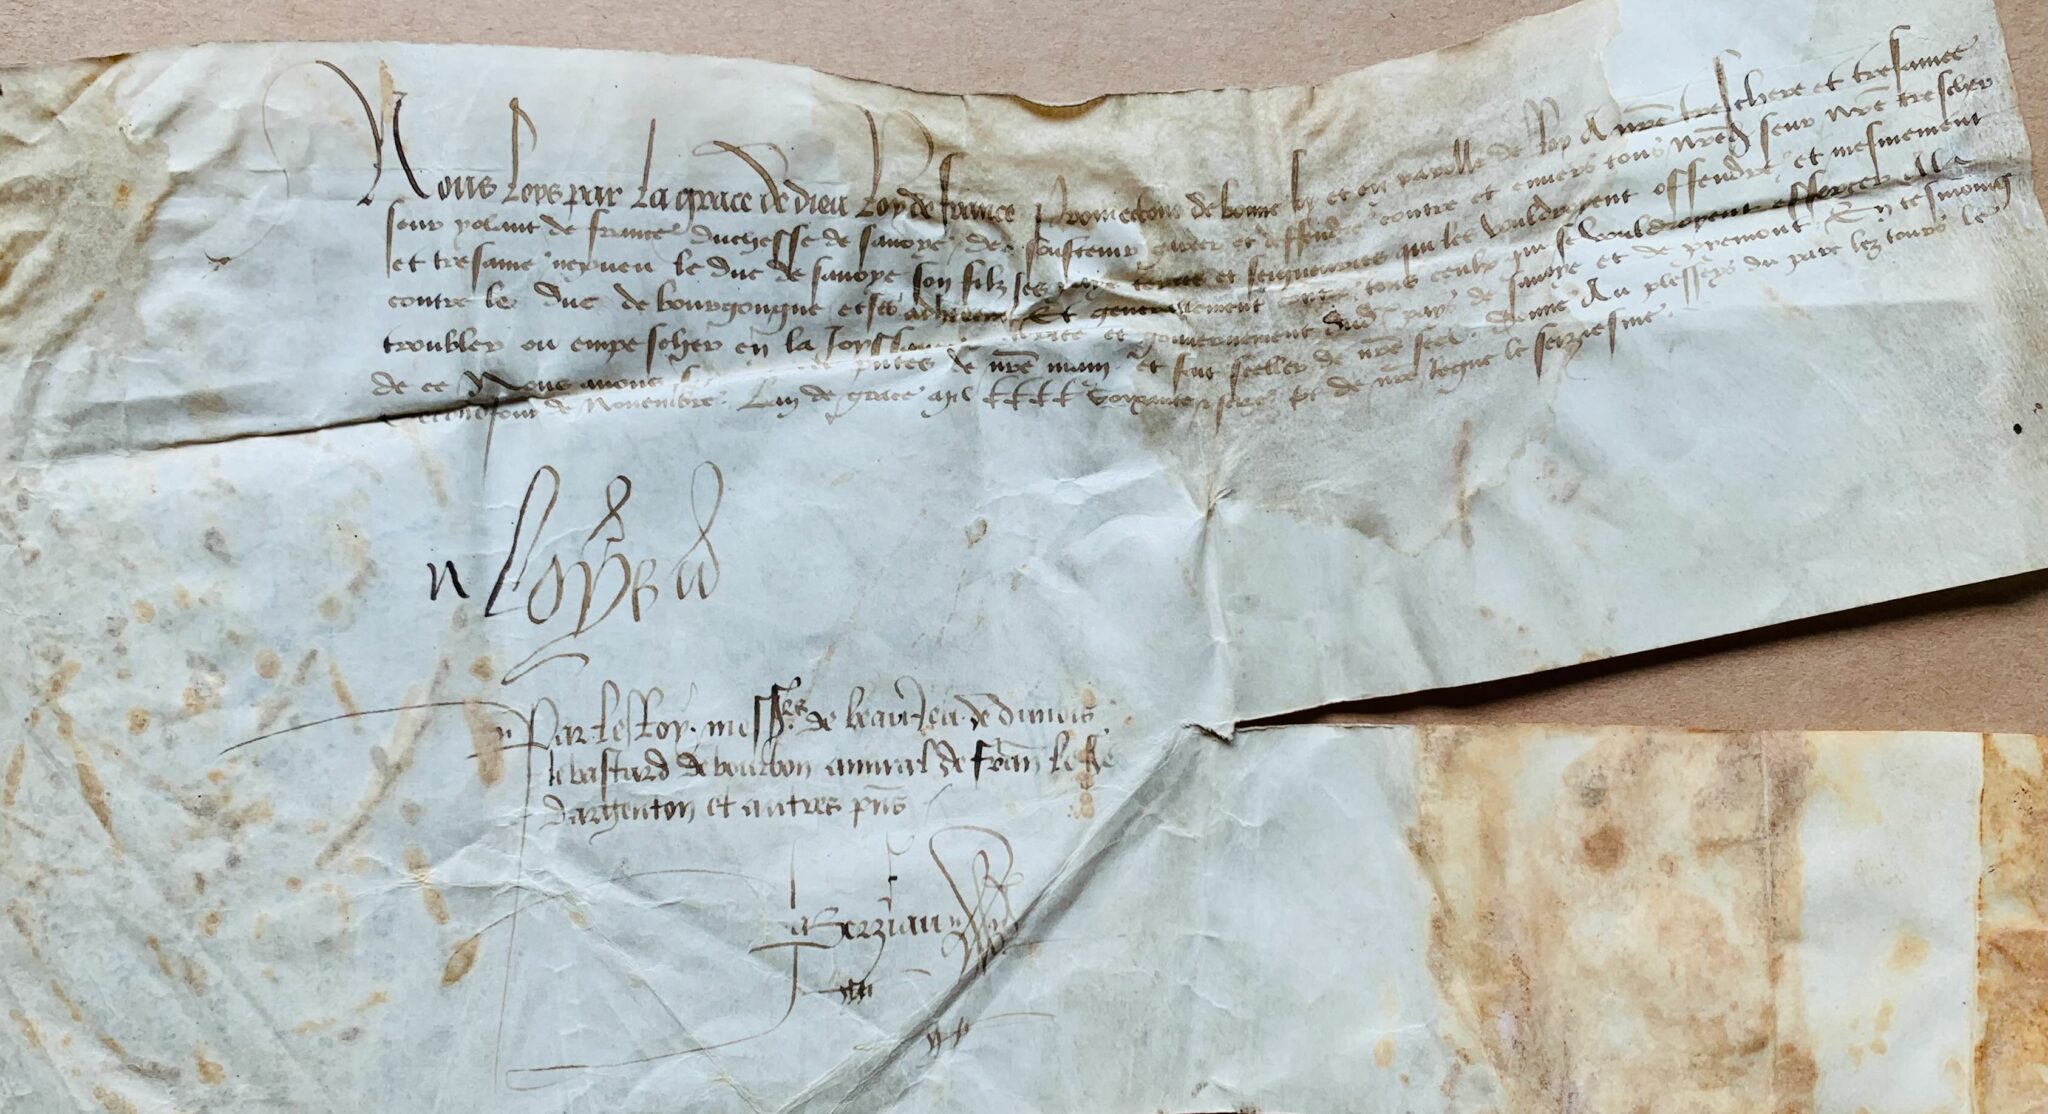 Nous Loys par la grace de dieu Roy de france Promectons de bonne foy et en parolle de Roy A nre treschere et tresamee
seur yolant de france duchesse de savoye de soustenir garder et deffendre contre et envers tous nred seur nre trescher
et tresame nepveu le duc de savoye son filz ses pays terres et seigneuries qui les vouldroyent offendre et mesmement
contre le duc de bourgongne et ses adherens Et generalement contre tous ceulx qui se vouldroyent efforcer
troubler ou empescher en la Joyssance et gouvernement dud pays de savoye et de premont En tesmoing
de ce Nous avons de nre main et fait seeller de nre seel Donne Au plesseys du parc lez tours le
second jour de Novembre Lan de grace mil cccc soixante seze Et de nre regne le seiziesme
Loys
Par le Roy messrs de beaujeu de dunois
le bastard de bourbon amiral de fran le sr
dargenton et autres pns